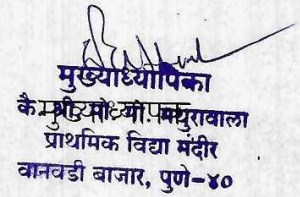 मुख्याध्यापिका
कै. श्री. मो. जो. मथुरावाला
प्राथमिक विद्या मंदीर
वानवडी बाजार, पुणे-४०